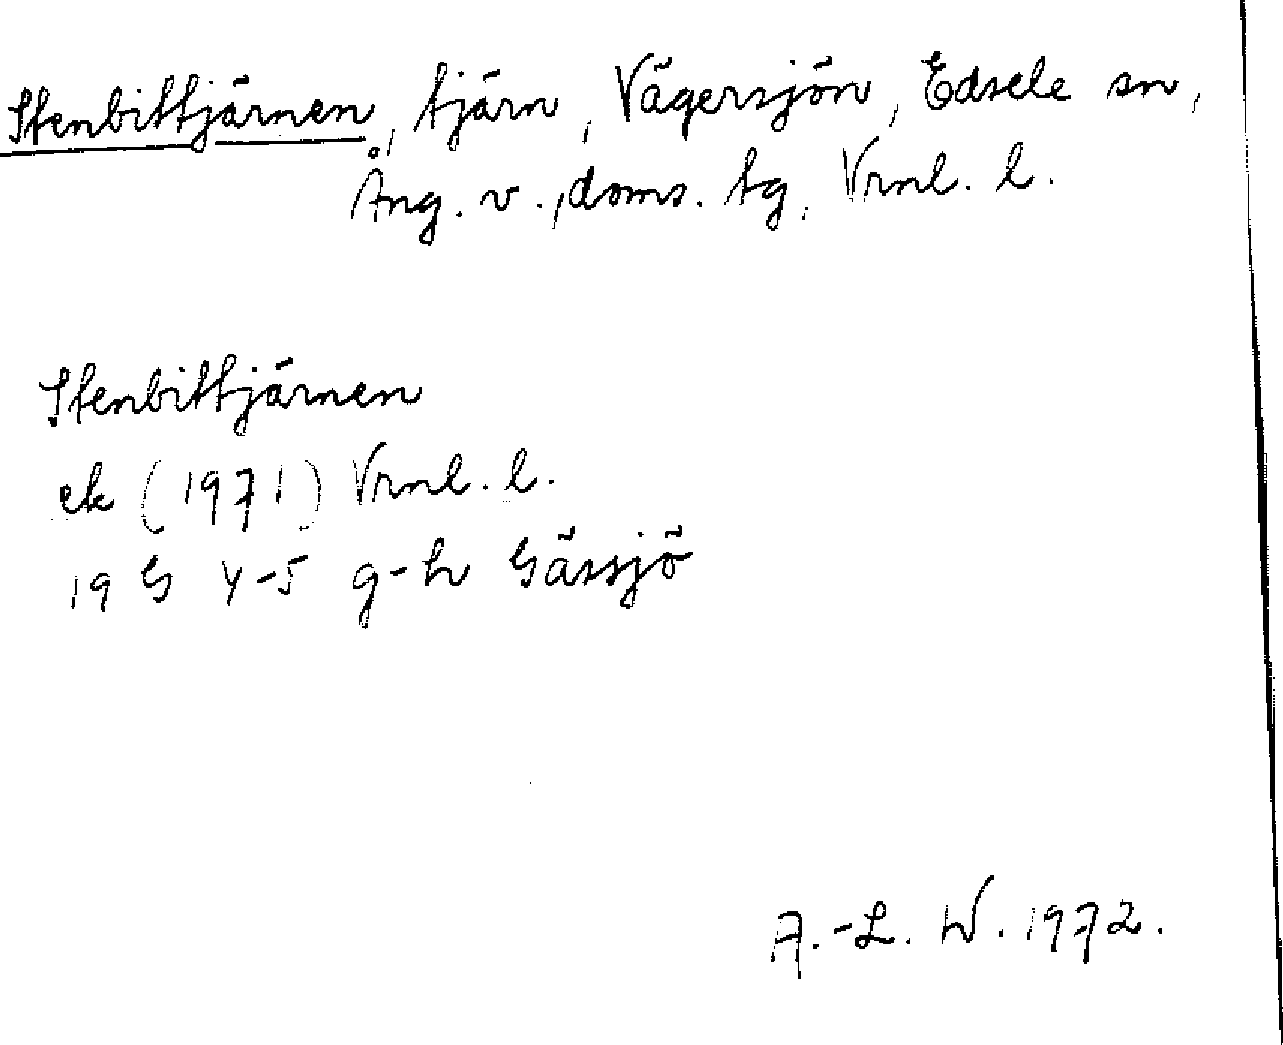 Stenbittjärnen, tjärn, Vägersjön, Edsele sn,
Ång. v., doms. tg, Vrnl. l.
Stenbittjärnen
ek (1971) Vrnl. l.
19 G 4-5 g-h Gässjö
A.-L. W. 1972.